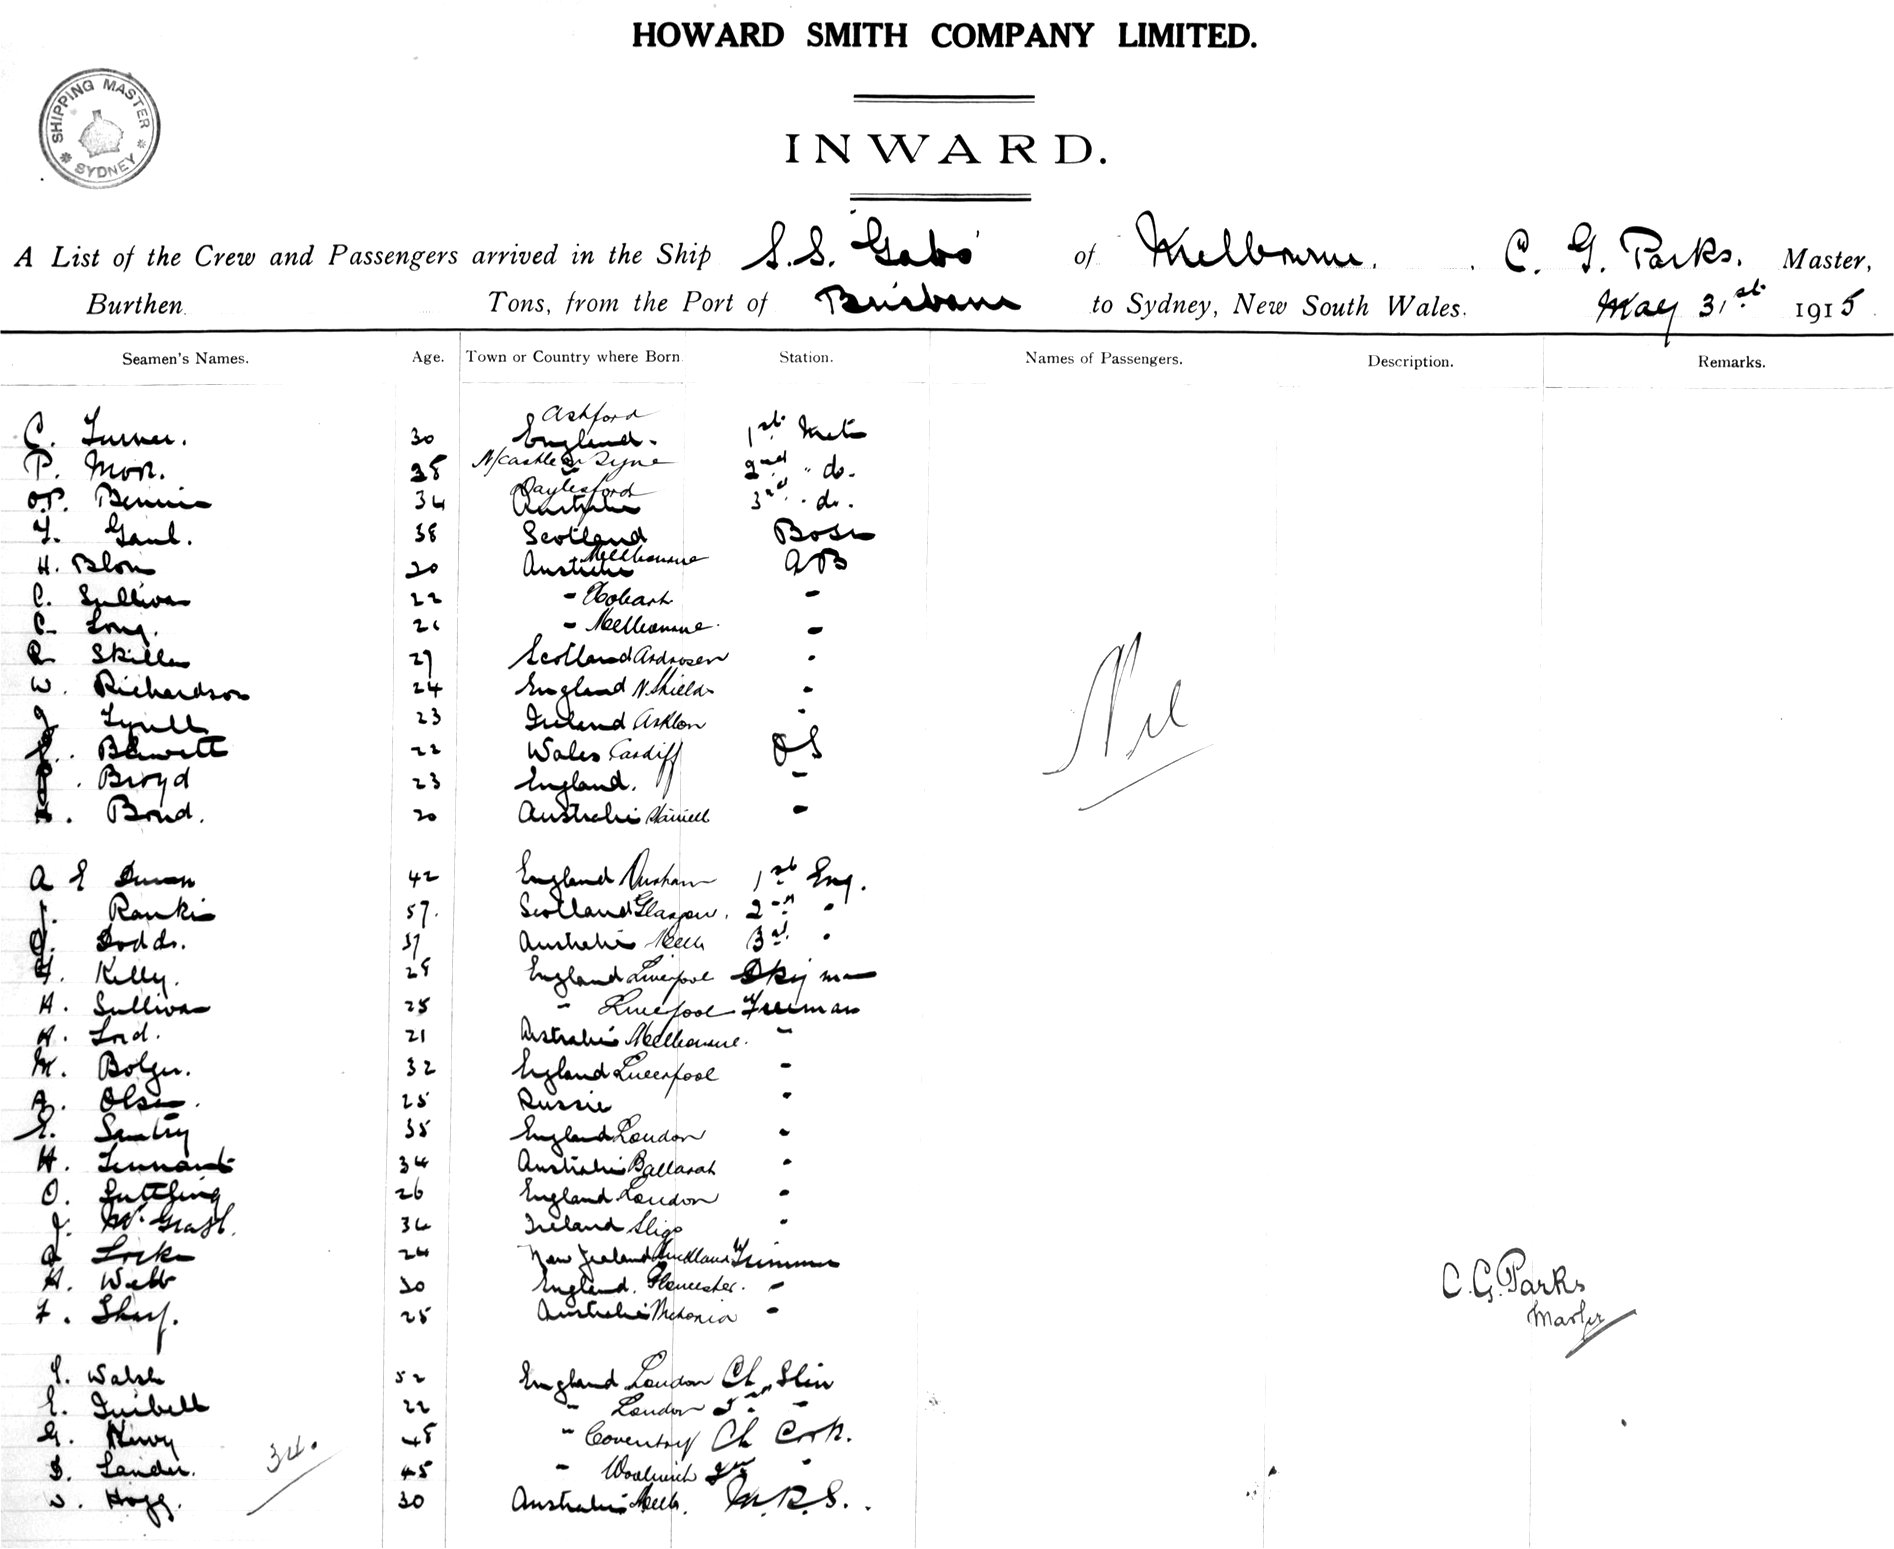 HOWARD SMITH COMPANY LIMITED.
SHIPPING MASTER
SYDNEY
INWARD.
A List of the Crew and Passengers arrived in the Ship S.S. Gabo of Melbourne. C. G. Parks. Master,
Burthen Tons, from the Port of Brisbane to Sydney, New South Wales. May 31st 1915
Seamen's Names. Age. Town or Country where Born Station. Names of Passengers. Description. Remarks.
C. Turner. 30 Ashford England. 1st Mate
P. Moor. N/castle on Tyne 2nd " do.
O.P. Bennie 34 Daylesford Australia 3rd " do.
Gaul. 38 Scotland Bosn
H. Blom 20 Australia Melbourne AB
C. Sullivan 22 - Hobart -
C. Long. - Melbourne. -
R Skillen 27 Scotland Ardrosen "
W. Richardson 24 England N. Shields "
J Tyrell 23 Ireland "
Blewett 22 Wales Cardiff OS
Broyd 23 England. -
H. Bond. 20 Australia -
A E 42 England Durham 1st Eng.
J. Rankin 57. Scotland Glasgow. 2nd "
J. Dodds. 37 Australia Melb 3rd "
Kelly. 28 England Liverpool Dkyman
H. Sullivan 25 - Liverpool Fireman
H. Lord. 21 Australia Melbourne. -
M. Bolger. 32 England Liverpool -
A. Olsen. 25 Russia "
E. Santry 35 England London "
H. Tennant 34 Australia Ballarat "
O. Suttling 26 England London "
J. McGrath. 34 Ireland Sligo "
Locke 24 New Zealand Auckland Trimmer
H. Webb 30 England. Gloucester. -
F. Sharp. 25 Australia -
Walsh 52 England London Ch Stew
E. 22 - London 2nd -
G. 48 - Coventry Ch Cook.
S. Lander. 45 - Woolwich 2nd "
W. Hogg. 30 Australia Melb. M.R.S.
34.
Nil
C. G. Parks
Master